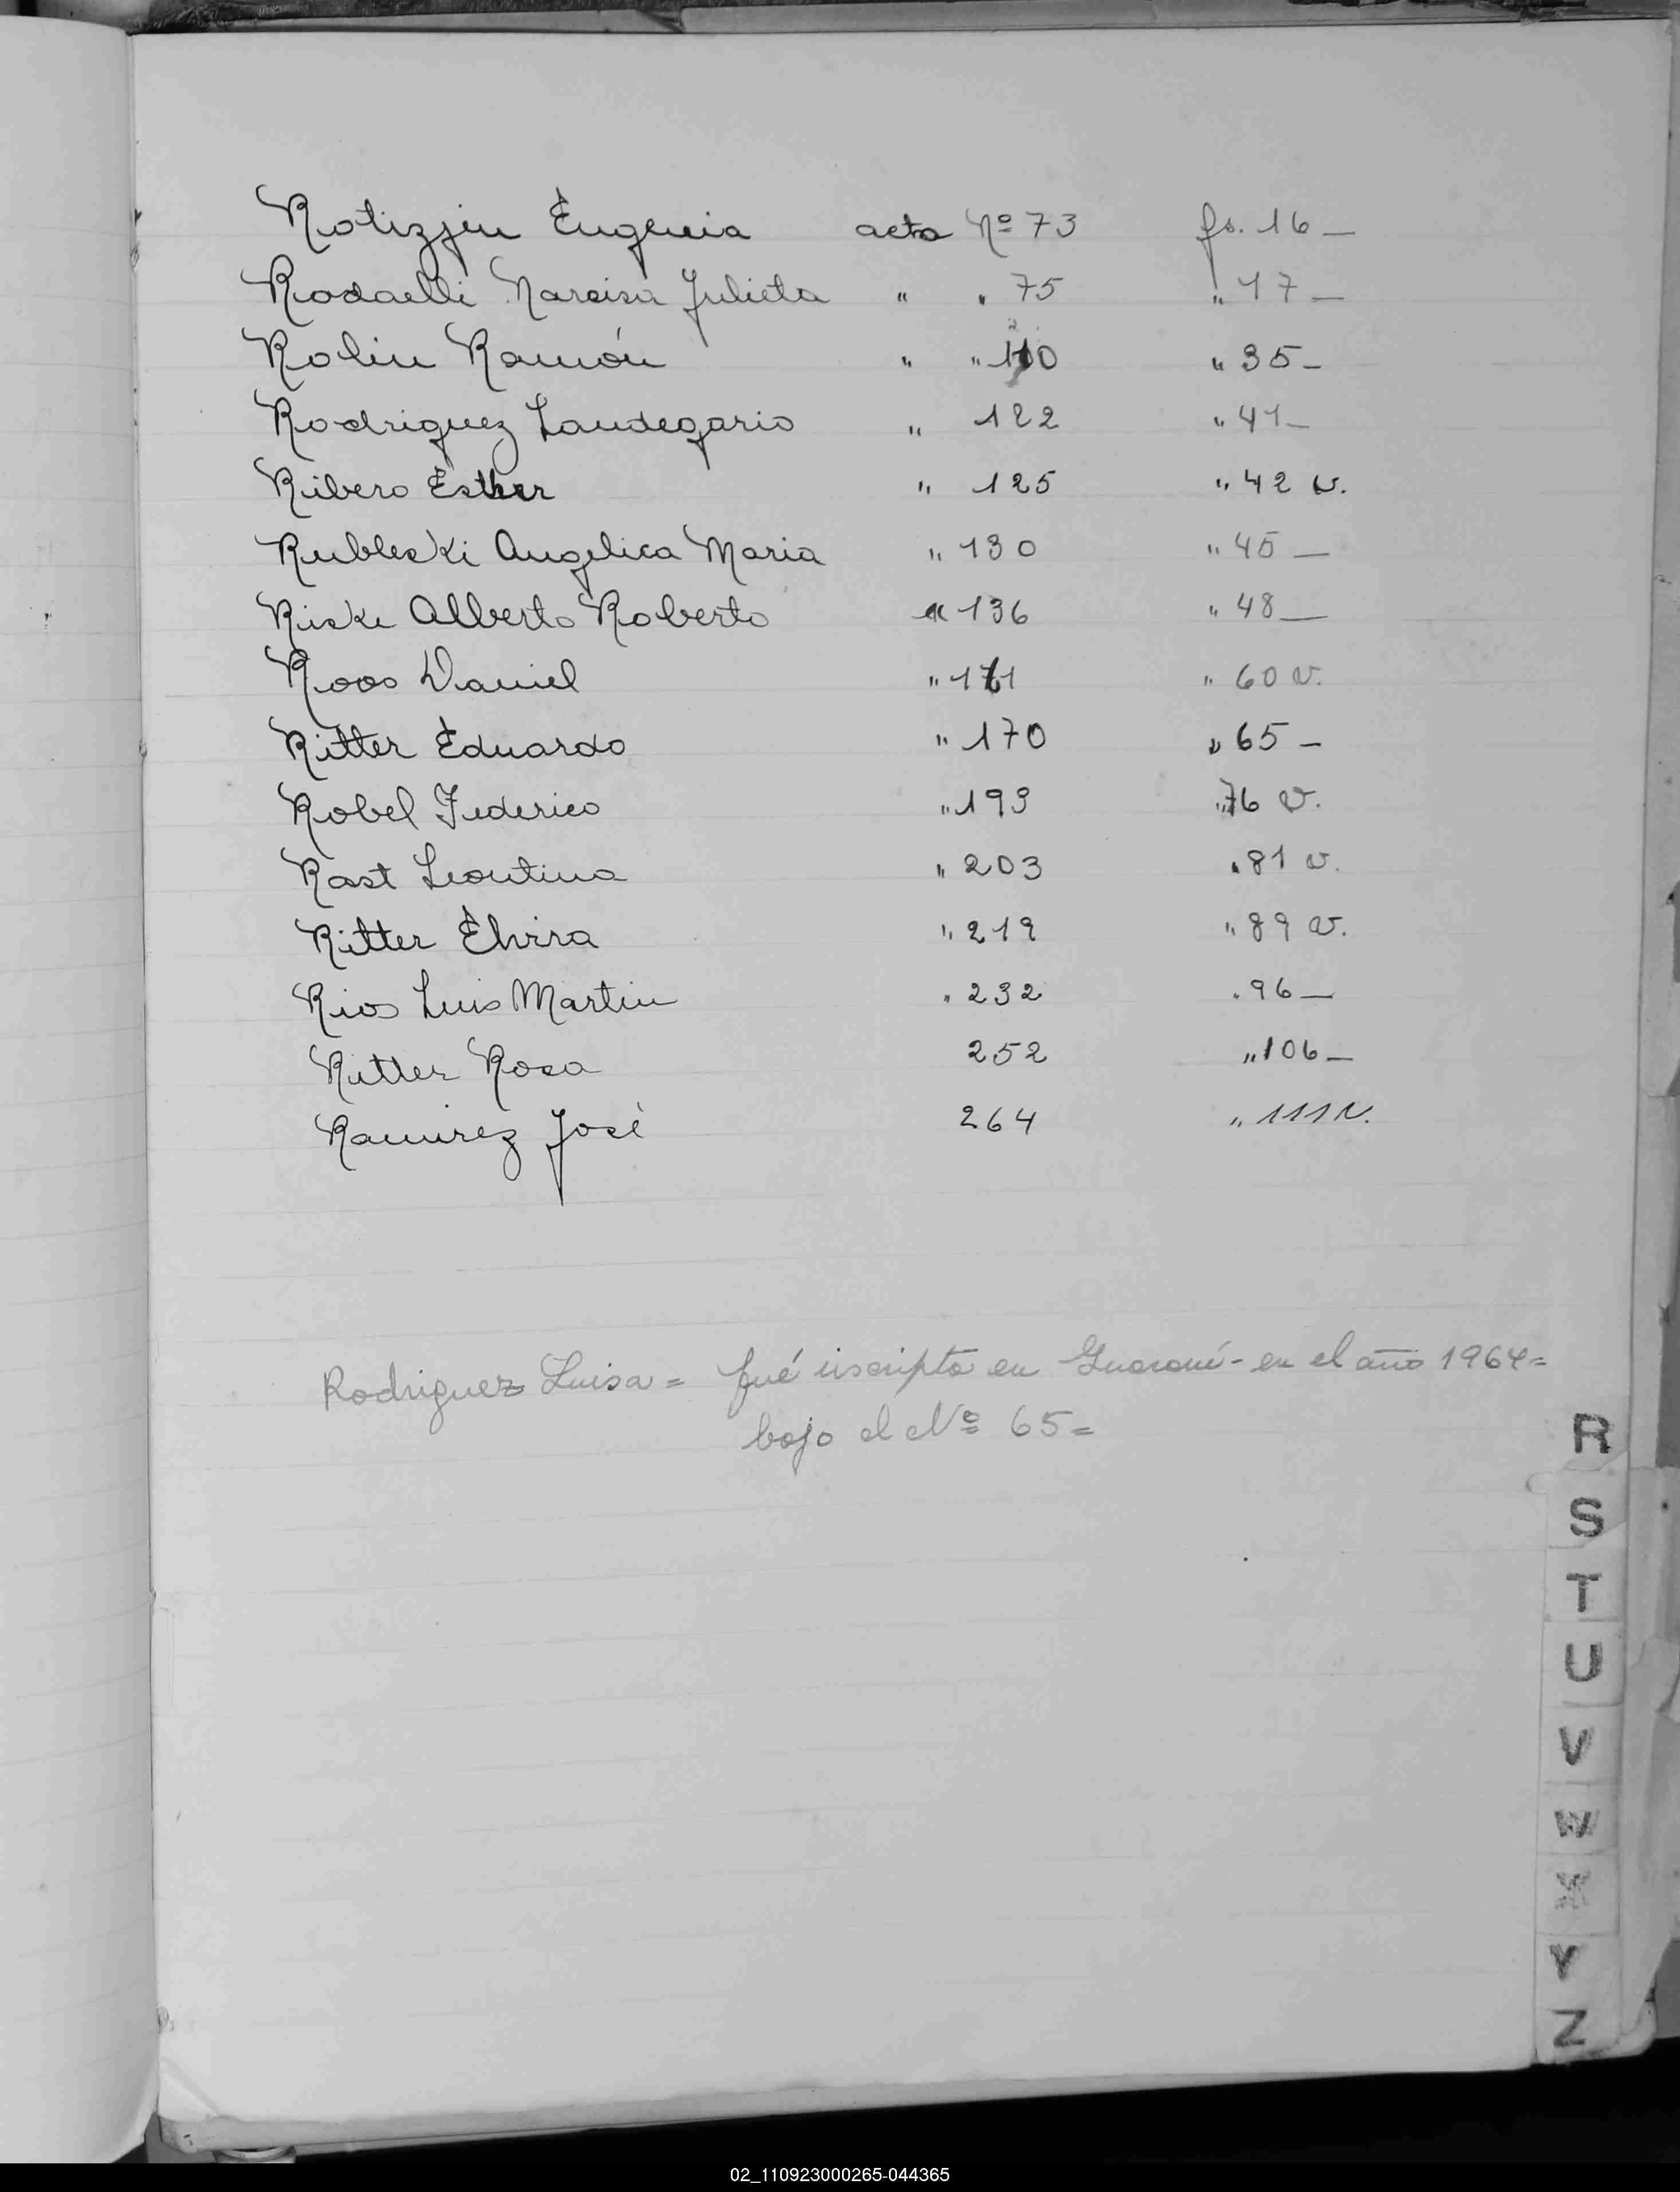 Rotizjen Eugenia acta Nº 73 fs. 16 —
Rodaelli Narcisa Julieta " " 75 " 17 —
Rolin Ramón " " 110 " 35 —
Rodriguez Laudegario " 122 " 41 —
Ribero Esther " 125 " 42 v.
Rubleski Angelica Maria " 130 " 45 —
Riske Alberto Roberto " 136 " 48 —
Roos Daniel " 161 " 60 v.
Ritter Eduardo " 170 " 65 —
Robel Federico " 193 " 76 v.
Rast Leontina " 203 " 81 v.
Ritter Elvira " 219 " 89 v.
Rios Luis Martin " 232 " 96 —
Ritter Rosa 252 " 106 —
Ramirez José 264 " 111 v.
Rodriguez Luisa = fué iscripta en Guaraní - en el año 1964 =
bajo el Nº 65 =
R
S
T
U
V
W
X
Y
Z
02_110923000265-044365